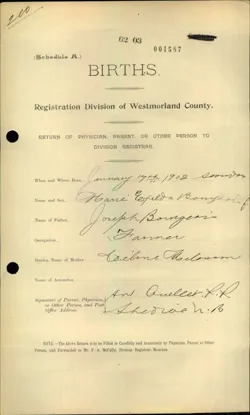 200
62 03
001587
(Schedule A.)
BIRTHS.
Registration Division of Westmorland County.
RETURN OF PHYSICIAN, PARENT, OR OTHER PERSON TO
DIVISION REGISTRAR.
When and Where Born, January 17th 1902
Name and Sex, Marie
Name of Father, Joseph Bourgeois
Occupation, Farmer
Maiden Name of Mother
Name of Accoucheur
Signature of Parent, Physician,
or Other Person, and Post
Office Address
Ouellet
Shediac N.B
NOTE.—The Above Return is to be Filled in Carefully and Accurately by Physician, Parent or Other
Person, and Forwarded to Division Registrar, Moncton.